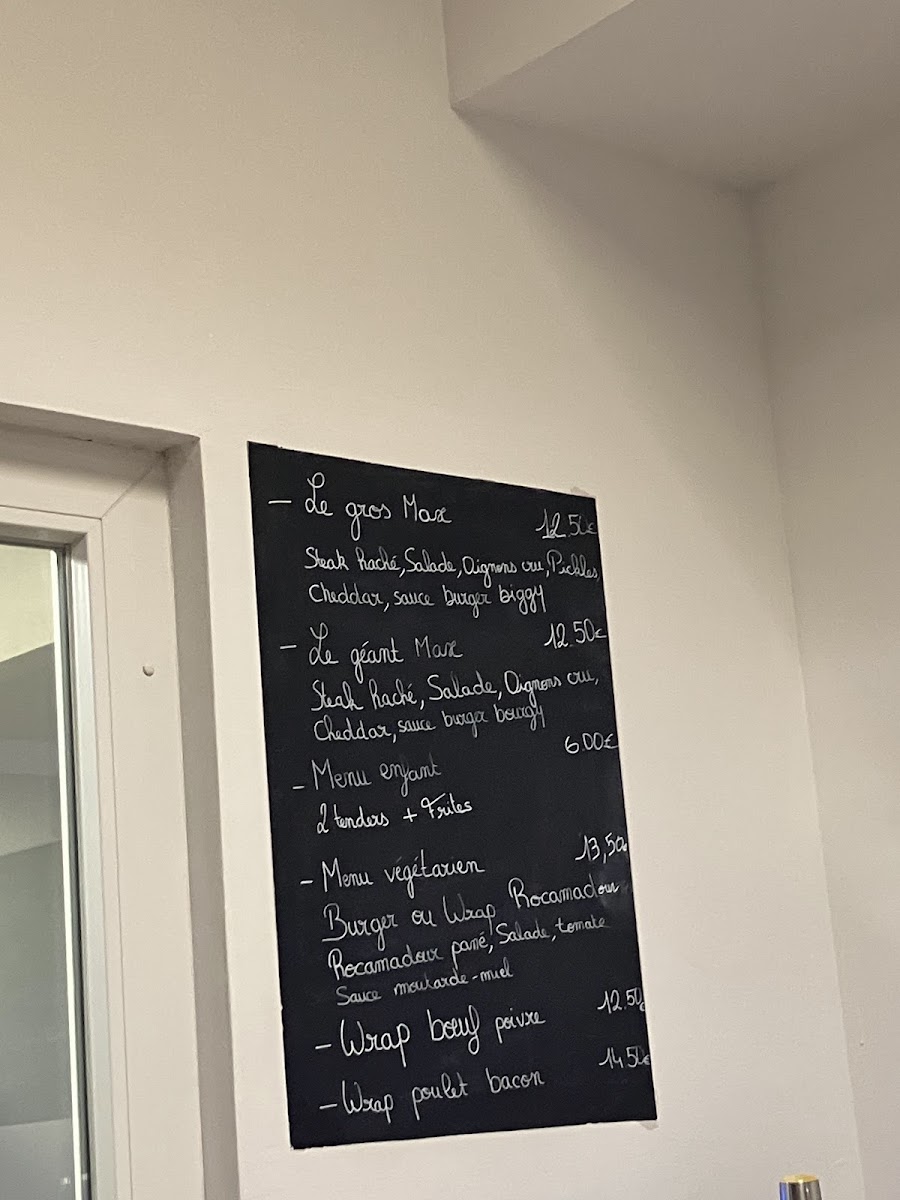 - Le gros Max 12.50€
Steak haché, Salade, Oignons cru, Pickles,
Cheddar, sauce burger biggy
- Le géant Max 12.50€
Steak haché, Salade, Oignons cru,
Cheddar, sauce burger bourgy
- Menu enfant 6.00€
2 tenders + Frites
- Menu végétarien 13,50€
Burger ou Wrap Rocamadour
Rocamadour pané, Salade, tomate
Sauce moutarde-miel
- Wrap bœuf poivre 12.50€
- Wrap poulet bacon 14.50€